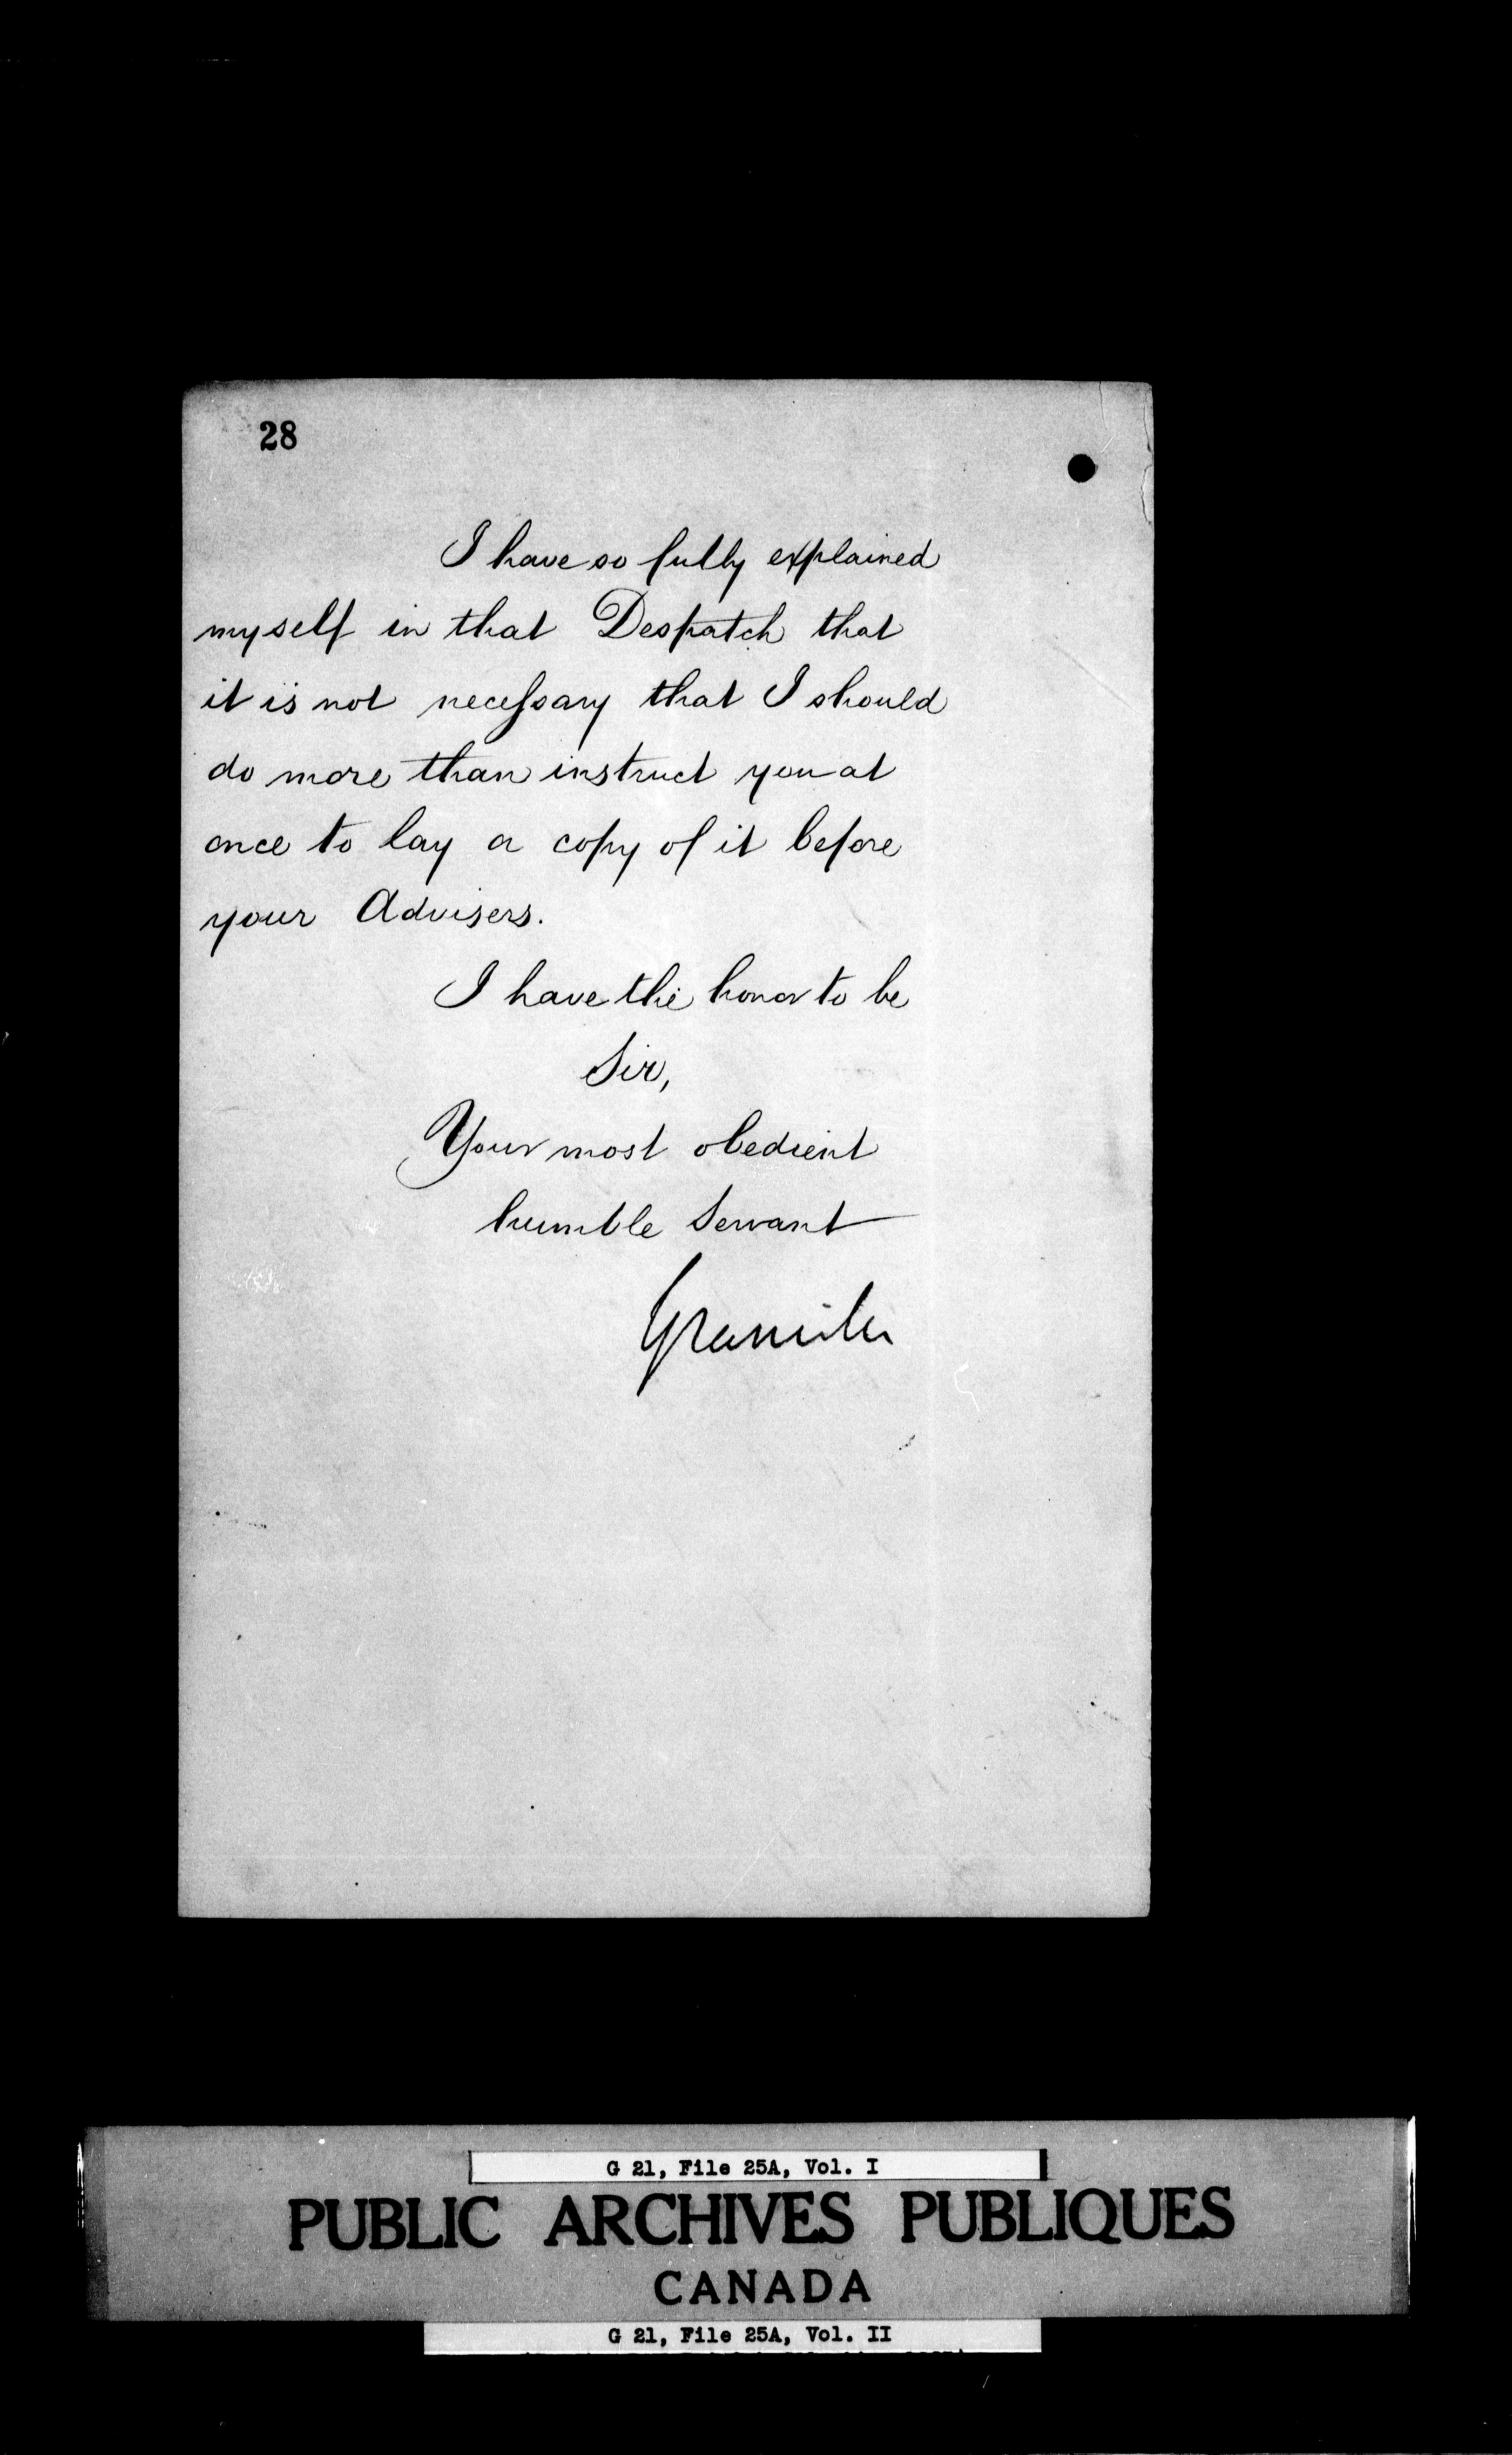 28
I have so fully explained
myself in that Despatch that
it is not necessary that I should
do more than instruct you at
once to lay a copy of it before
your Advisers.
I have the honor to be
Sir,
Your most obedient
humble Servant
Granville
G 21, File 25A, Vol. I
PUBLIC ARCHIVES PUBLIQUES
CANADA
G 21, File 25A, Vol. II